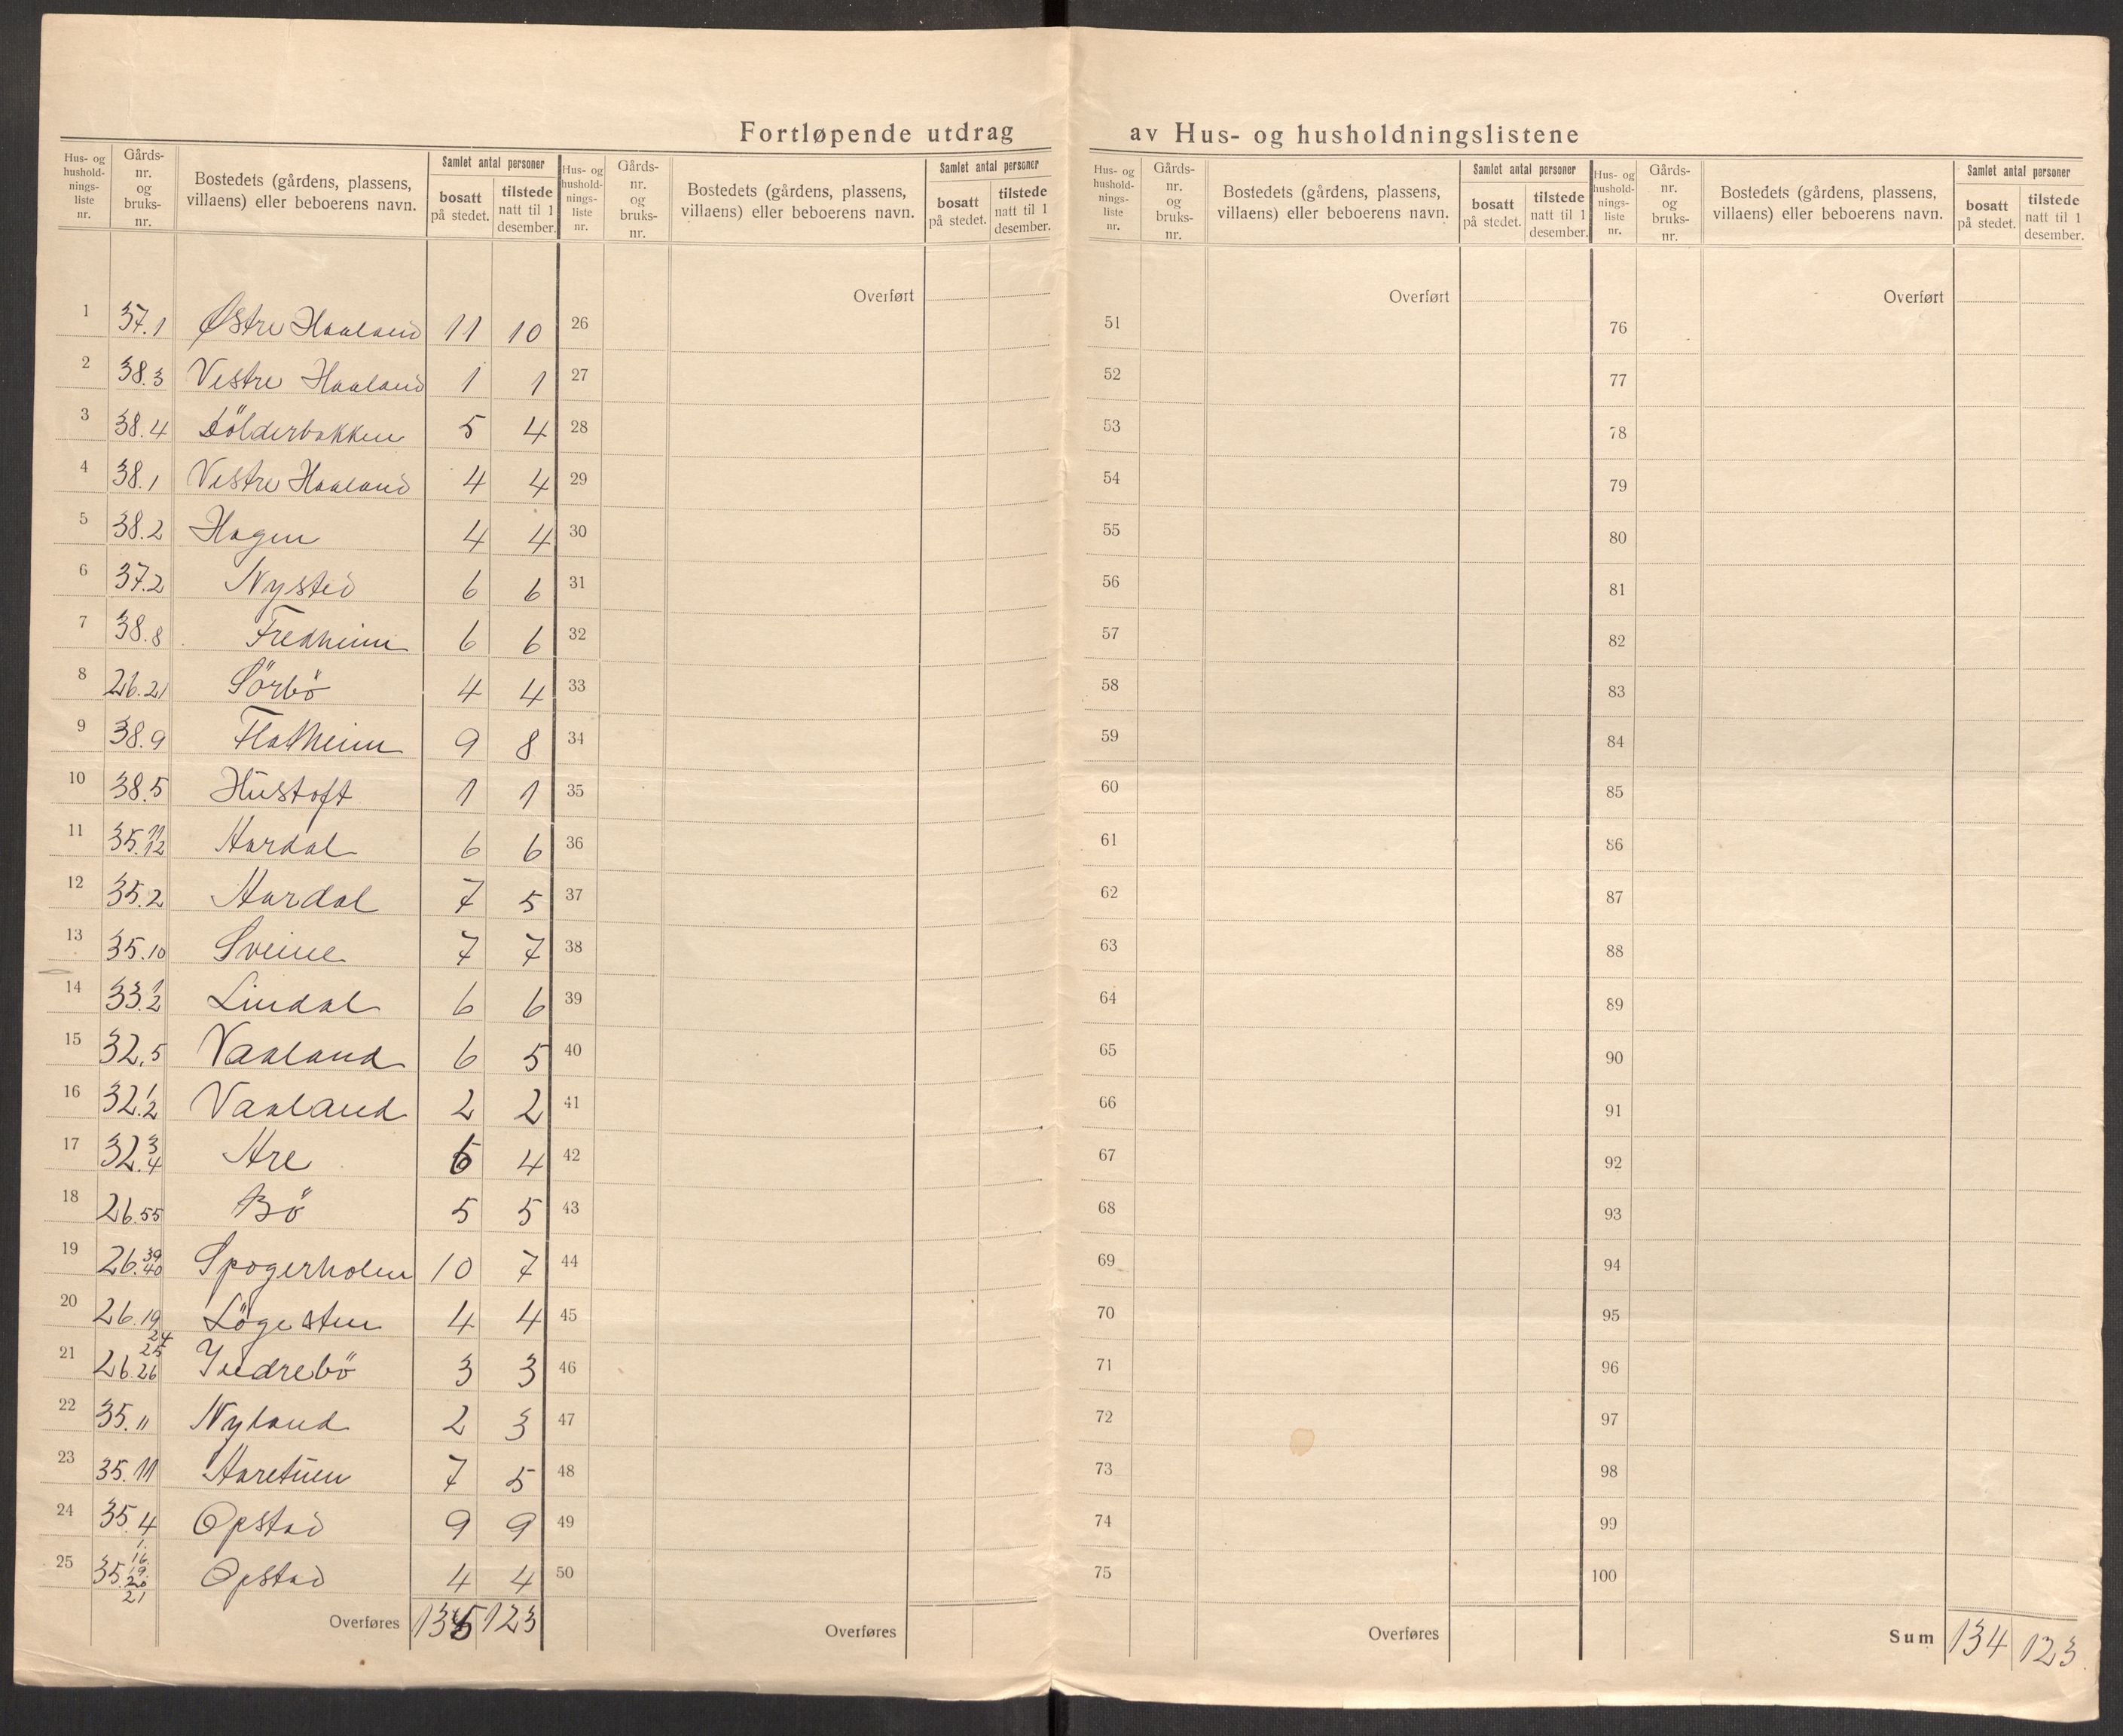 Fortløpende utdrag av Hus- og husholdningslistene
Hus- og hushold-nings-liste nr. | Gårds-nr. og bruks-nr. | Bostedets (gårdens, plassens, villaens) eller beboerens navn. | Samlet antal personer | bosatt på stedet. | tilstede natt til 1 desember.
Hus- og hushold-nings-liste nr. | Gårds-nr. og bruks-nr. | Bostedets (gårdens, plassens, villaens) eller beboerens navn. | Samlet antal personer | bosatt på stedet. | tilstede natt til 1 desember.
Hus- og hushold-nings-liste nr. | Gårds-nr. og bruks-nr. | Bostedets (gårdens, plassens, villaens) eller beboerens navn. | Samlet antal personer | bosatt på stedet. | tilstede natt til 1 desember.
Hus- og hushold-nings-liste nr. | Gårds-nr. og bruks-nr. | Bostedets (gårdens, plassens, villaens) eller beboerens navn. | Samlet antal personer | bosatt på stedet. | tilstede natt til 1 desember.
Overført Overført Overført
1 37.1 Østre Haaland 11 10 26 51 76
2 38.3 Vestre Haaland 1 1 27 52 77
3 38.4 5 4 28 53 78
4 38.1 Vestre Haaland 4 4 29 54 79
5 38.2 Hagen 4 4 30 55 80
6 37.2 Nysted 6 6 31 56 81
7 38.8 Fredheim 6 6 32 57 82
8 26.21 Sörbö 4 4 33 58 83
9 38.9 Flatheim 9 8 34 59 84
10 38.5 Hustoft 1 1 35 60 85
11 35.11 12 Aardal 6 6 36 61 86
12 35.2 Aardal 7 5 37 62 87
13 35.10 Sveine 7 7 38 63 88
14 33.1 2 Lindal 6 6 39 64 89
15 32.5 Vaaland 6 5 40 65 90
16 32.1 2 Vaaland 2 2 41 66 91
17 32.3 4 Are 4 42 67 92
18 26.55 Bö 5 5 43 68 93
19 26.39 40 Spogerholen 10 7 44 69 94
20 26.19 Lögesten 4 4 45 70 95
21 26.24 25 26 Indrebö 3 3 46 71 96
22 35.11 Nyland 2 3 47 72 97
23 35.11 Aaretuen 7 5 48 73 98
24 35.4 Opstad 9 9 49 74 99
25 35.1. 16. 19. 20 21 Opstad 4 4 50 75 100
Overføres 135 123 Overføres Overføres Sum 134 123